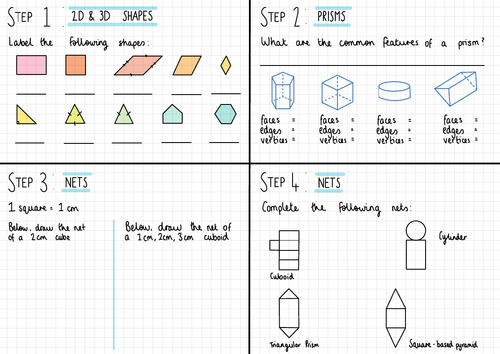 STEP 1: 2D & 3D SHAPES
Label the following shapes:
STEP 2: PRISMS
What are the common features of a prism?
faces = faces = faces = faces =
edges = edges = edges = edges =
vertices = vertices = vertices = vertices =
STEP 3: NETS
1 square = 1 cm
Below, draw the net
of a 2cm cube
Below, draw the net of
a 1cm, 2cm, 3cm cuboid
STEP 4: NETS
Complete the following nets:
Cuboid
Cylinder
Triangular Prism
Square-based pyramid